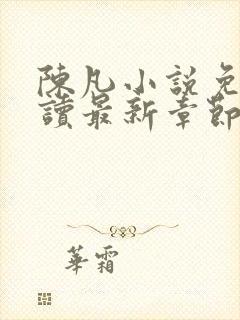 陳凡小說免
讀最新章節
華霜